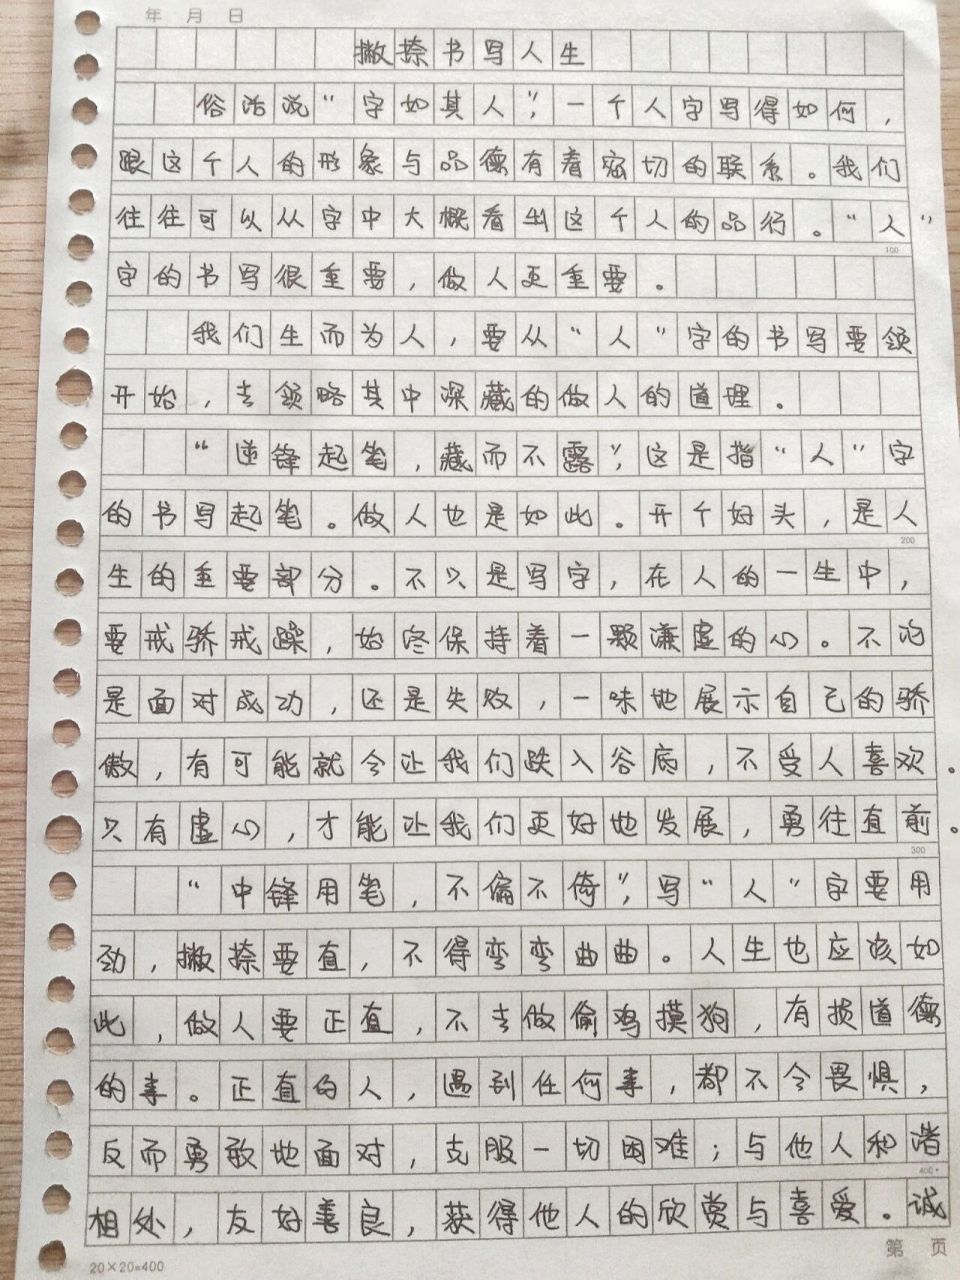 年 月 日
撇捺书写人生
俗话说“字如其人”，一个人字写得如何，
跟这个人的形象与品德有着密切的联系。我们
往往可以从字中大概看出这个人的品行。“人”
100
字的书写很重要，做人更重要。
我们生而为人，要从“人”字的书写要领
开始，去领略其中深藏的做人的道理。
“逆锋起笔，藏而不露”，这是指“人”字
的书写起笔。做人也是如此。开个好头，是人
200
生的重要部分。不只是写字，在人的一生中，
要戒骄戒躁，始终保持着一颗谦虚的心。不论
是面对成功，还是失败，一味地展示自己的骄
傲，有可能就会让我们跌入谷底，不受人喜欢。
只有虚心，才能让我们更好地发展，勇往直前。
300
“中锋用笔，不偏不倚”，写“人”字要用
劲，撇捺要直，不得弯弯曲曲。人生也应该如
此，做人要正直，不去做偷鸡摸狗，有损道德
的事。正直的人，遇到任何事，都不会畏惧，
反而勇敢地面对，克服一切困难；与他人和谐
400
相处，友好善良，获得他人的欣赏与喜爱。诚
20×20=400
第 页